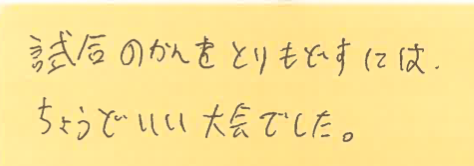 試合のかんをとりもどすには、
ちょうどいい大会でした。